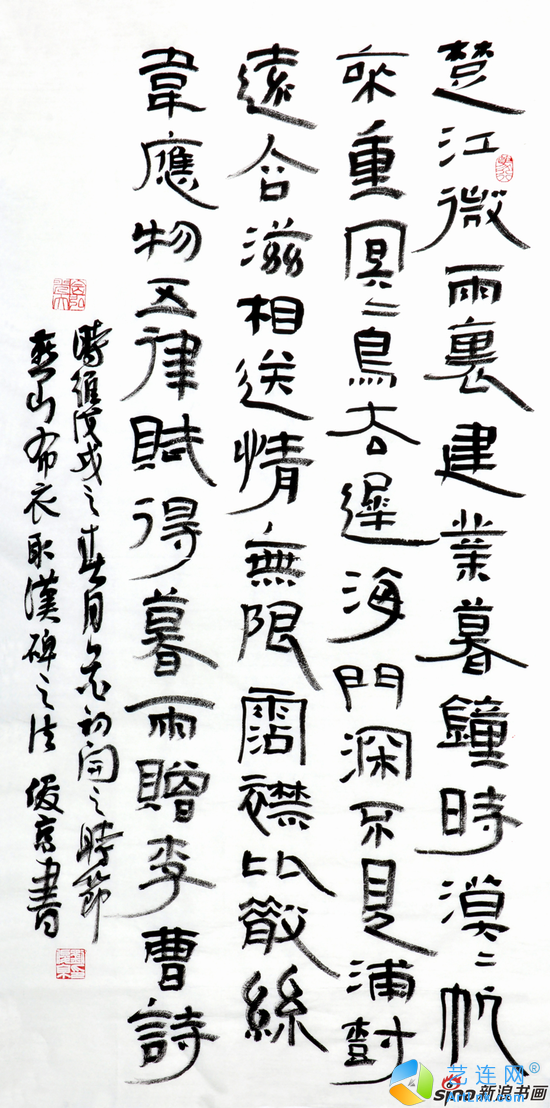 楚江微雨裏建業暮鐘時漠〻帆
來重冥〻鳥去遲海門深不見浦樹
遠含滋相送情無限霑襟比散絲
韋應物五律賦得暮雨贈李曹詩
時維戊戌之春月初開之時節
燕山布衣取漢碑之法 俊京書
艺连网®
sina新浪书画